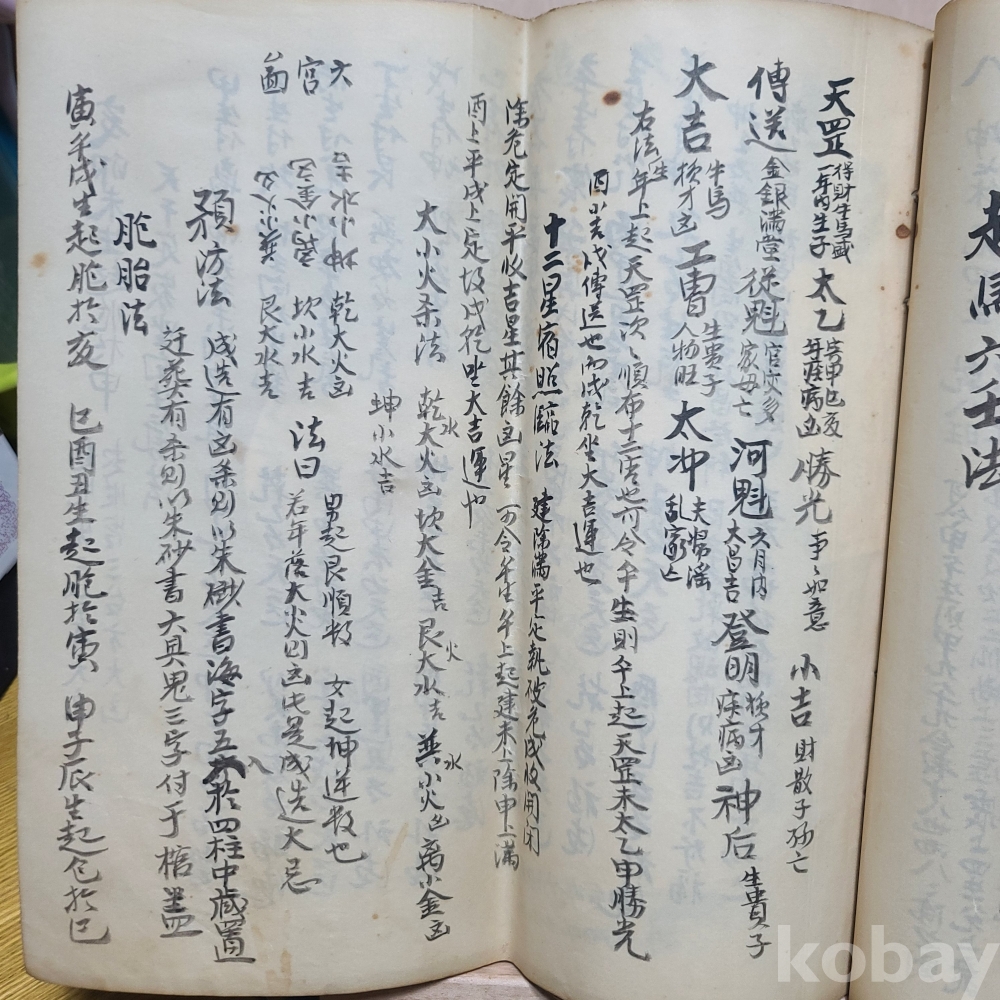 走馬六壬法
天罡 得財生馬盛 一年內生子 太乙 害申巳亥 年疾病凶 勝光 事〻如意 小吉 財散子孫亡
傳送 金銀滿堂 從魁 官灾多 家母亡 河魁 六月內 大昌吉 登明 損才 疾病凶 神后 生貴子
大吉 牛馬 損才凶 工曹 生貴子 人物旺 太冲 夫婦淫 乱家亡
右法生年上起天罡次〻順布十二宮也可令午生則午上起天罡未太乙申勝光
酉小吉戌傳送也而戌乾坐大吉運也
十二星宿照臨法 建除滿平定執破危成收開閉
除危定開平收吉星其餘凶星 可令午生午上起建未上除申上滿
酉上平戌上定故戌乾坐大吉運也
大小火杀法 乾大火凶坎大金吉 艮大水吉 巽小火凶 离小金凶
水 火 水
坤小水吉
六宮圖
坤小水吉 乾大火凶 男起艮順数 女起坤逆数也
离小金凶 坎小水吉 法曰 若年落大火則凶此是成造大忌
巽小火凶 艮大水吉
預防法 成造有凶杀則以朱砂書海字五 八 於四柱中藏置
迁葬有杀則以朱砂書六具鬼三字付于棺盖
胞胎法
寅午戌生起胞於亥 巳酉丑生起胞於寅 申子辰生起包於巳
kobay